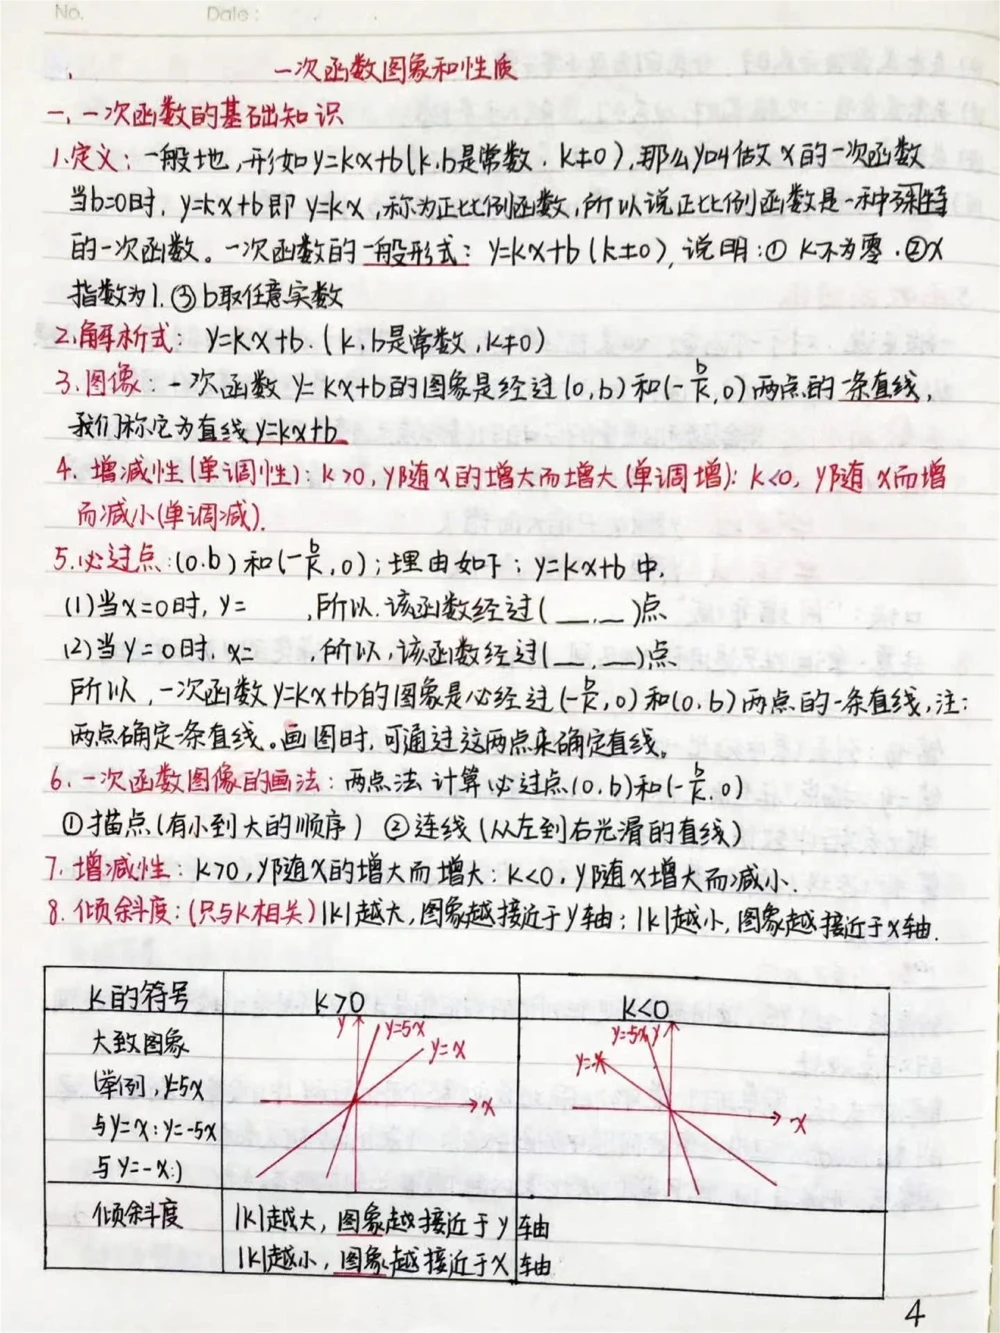 No.
Date:
一次函数图象和性质
一、一次函数的基础知识
1.定义：一般地,形如y=kx+b(k,b是常数，k≠0),那么y叫做x的一次函数
当b=0时，y=kx+b即y=kx,称为正比例函数,所以说正比例函数是一种特
的一次函数。一次函数的一般形式：y=kx+b(k±0),说明:①k不为零.②x
指数为1.③b取任意实数
2.解析式：y=kx+b.(k,b是常数,k≠0)
3.图像：一次函数y=kx+b的图象是经过(0,b)和(-b/k,0)两点的一条直线，
我们称它为直线y=kx+b
4.增减性(单调性)：k>0,y随x的增大而增大(单调增)：k<0,y随x而增
而减小(单调减).
5.必过点:(0.b)和(-b/k,0)；理由如下：y=kx+b中.
(1)当x=0时，y=　　,所以.该函数经过(__.__)点
(2)当y=0时.x=　　,所以,该函数经过(__.__)点
所以，一次函数y=kx+b的图象是必经过(-b/k,0)和(0,b)两点的一条直线,注：
两点确定一条直线。画图时,可通过这两点来确定直线。
6.一次函数图像的画法：两点法 计算必过点(0,b)和(-b/k,0)
①描点(有小到大的顺序) ②连线(从左到右光滑的直线)
7.增减性：k>0,y随x的增大而增大：k<0,y随x增大而减小.
8.倾斜度：(只与K相关)|k|越大,图象越接近于y轴；|k|越小,图象越接近于x轴.
K的符号
k>0
k<0
大致图象
(举例,y=5x
与y=x：y=-5x
与y=-x:)
y
y=5x
y=x
x
y=5x
y
y=x
x
倾斜度
|k|越大,图象越接近于y轴
|k|越小,图象越接近于x轴
4